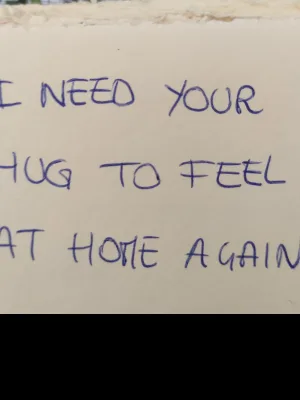 I NEED YOUR
HUG TO FEEL
AT HOME AGAIN